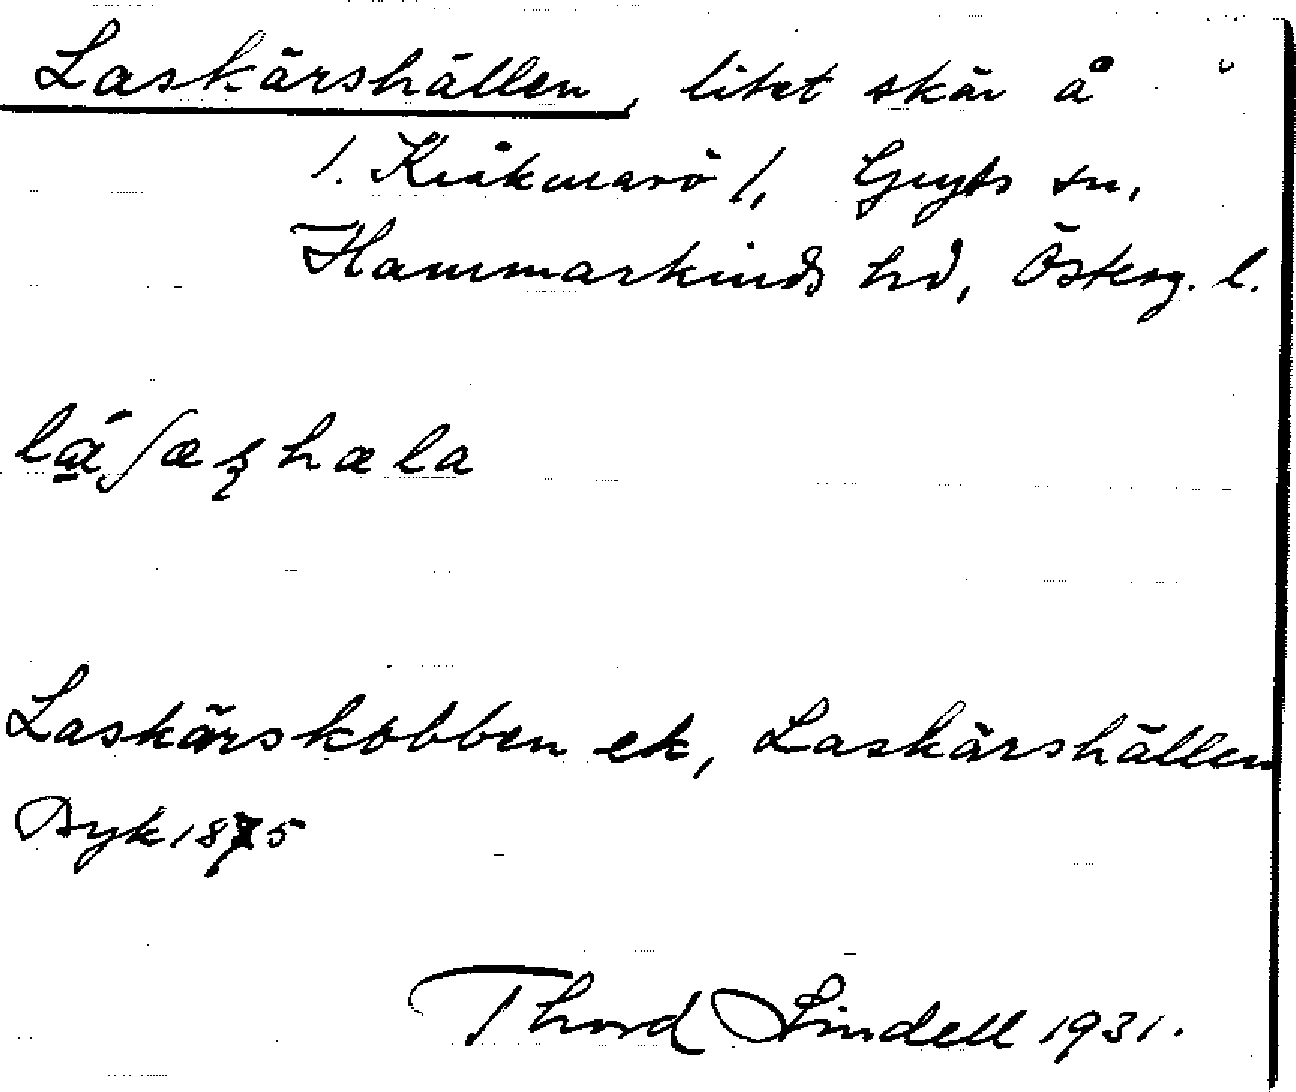 Laskärshällen, litet skär å
1. Kråkmarö 1, Gryts sn,
Hammarkinds hd, Österg. l.
lá̱ʃæʂhæla
Laskärskobben ek, Laskärshällen
Dyk 1875
Thord Lindell 1931.